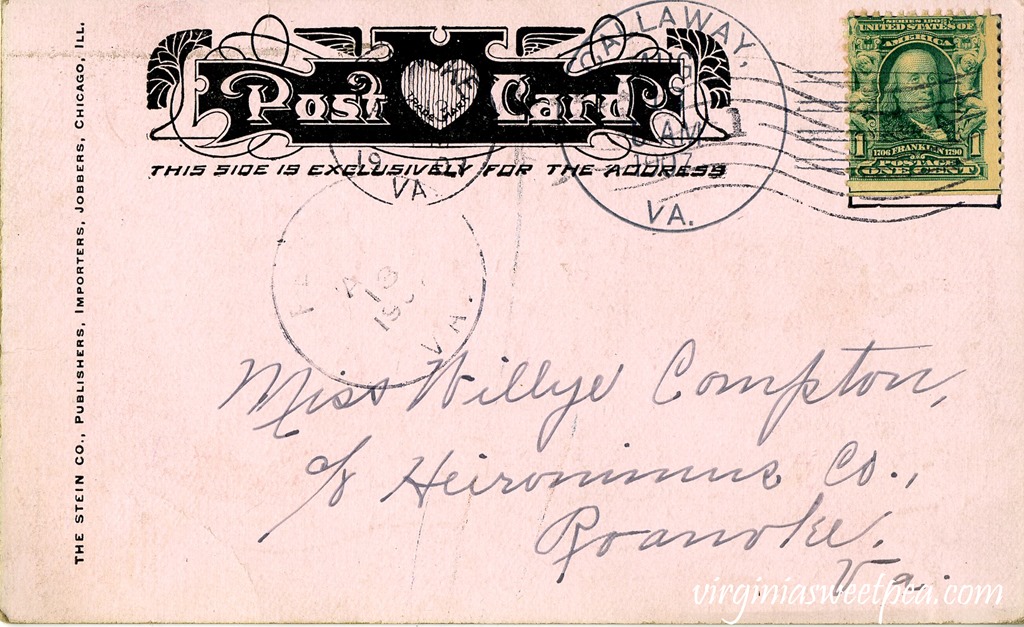 THE STEIN CO., PUBLISHERS, IMPORTERS, JOBBERS, CHICAGO, ILL.
Post Card
THIS SIDE IS EXCLUSIVELY FOR THE ADDRESS
CALLAWAY,
AM
1907
VA.
1
19
VA
SERIES 1902
UNITED STATES OF
AMERICA
1 1706 FRANKLIN 1790 1
POSTAGE
ONE CENT
A
13
VA.
Miss Willye Compton,
c/o Heironimus Co.,
Roanoke.
Va.
virginiasweetpea.com